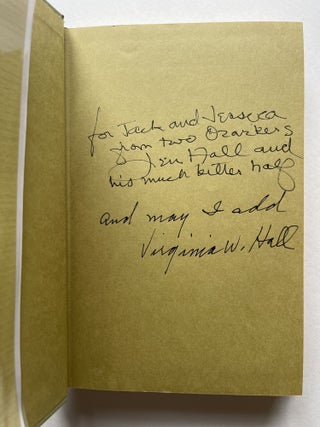 for Jack and Jessica
from two Ozarkers
Len Hall and
his much better half
and may I add
Virginia W. Hall